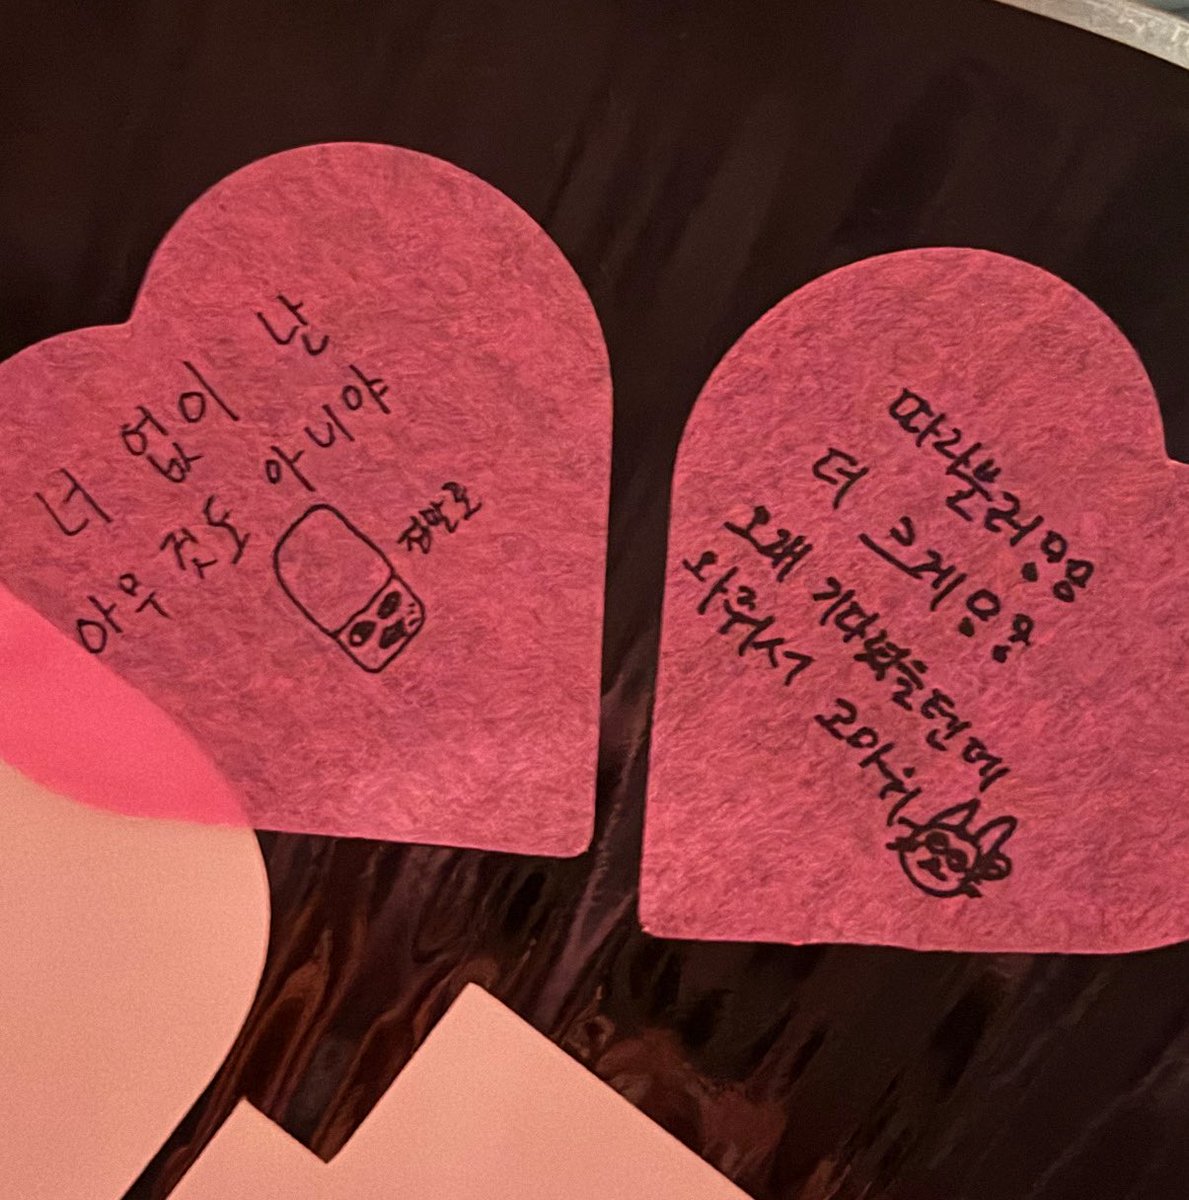 너 없이 난
아무 것도 아니야
정말로
따라쁘러용
더 크게용
오래 기다렸을텐데
와줘서 고마워